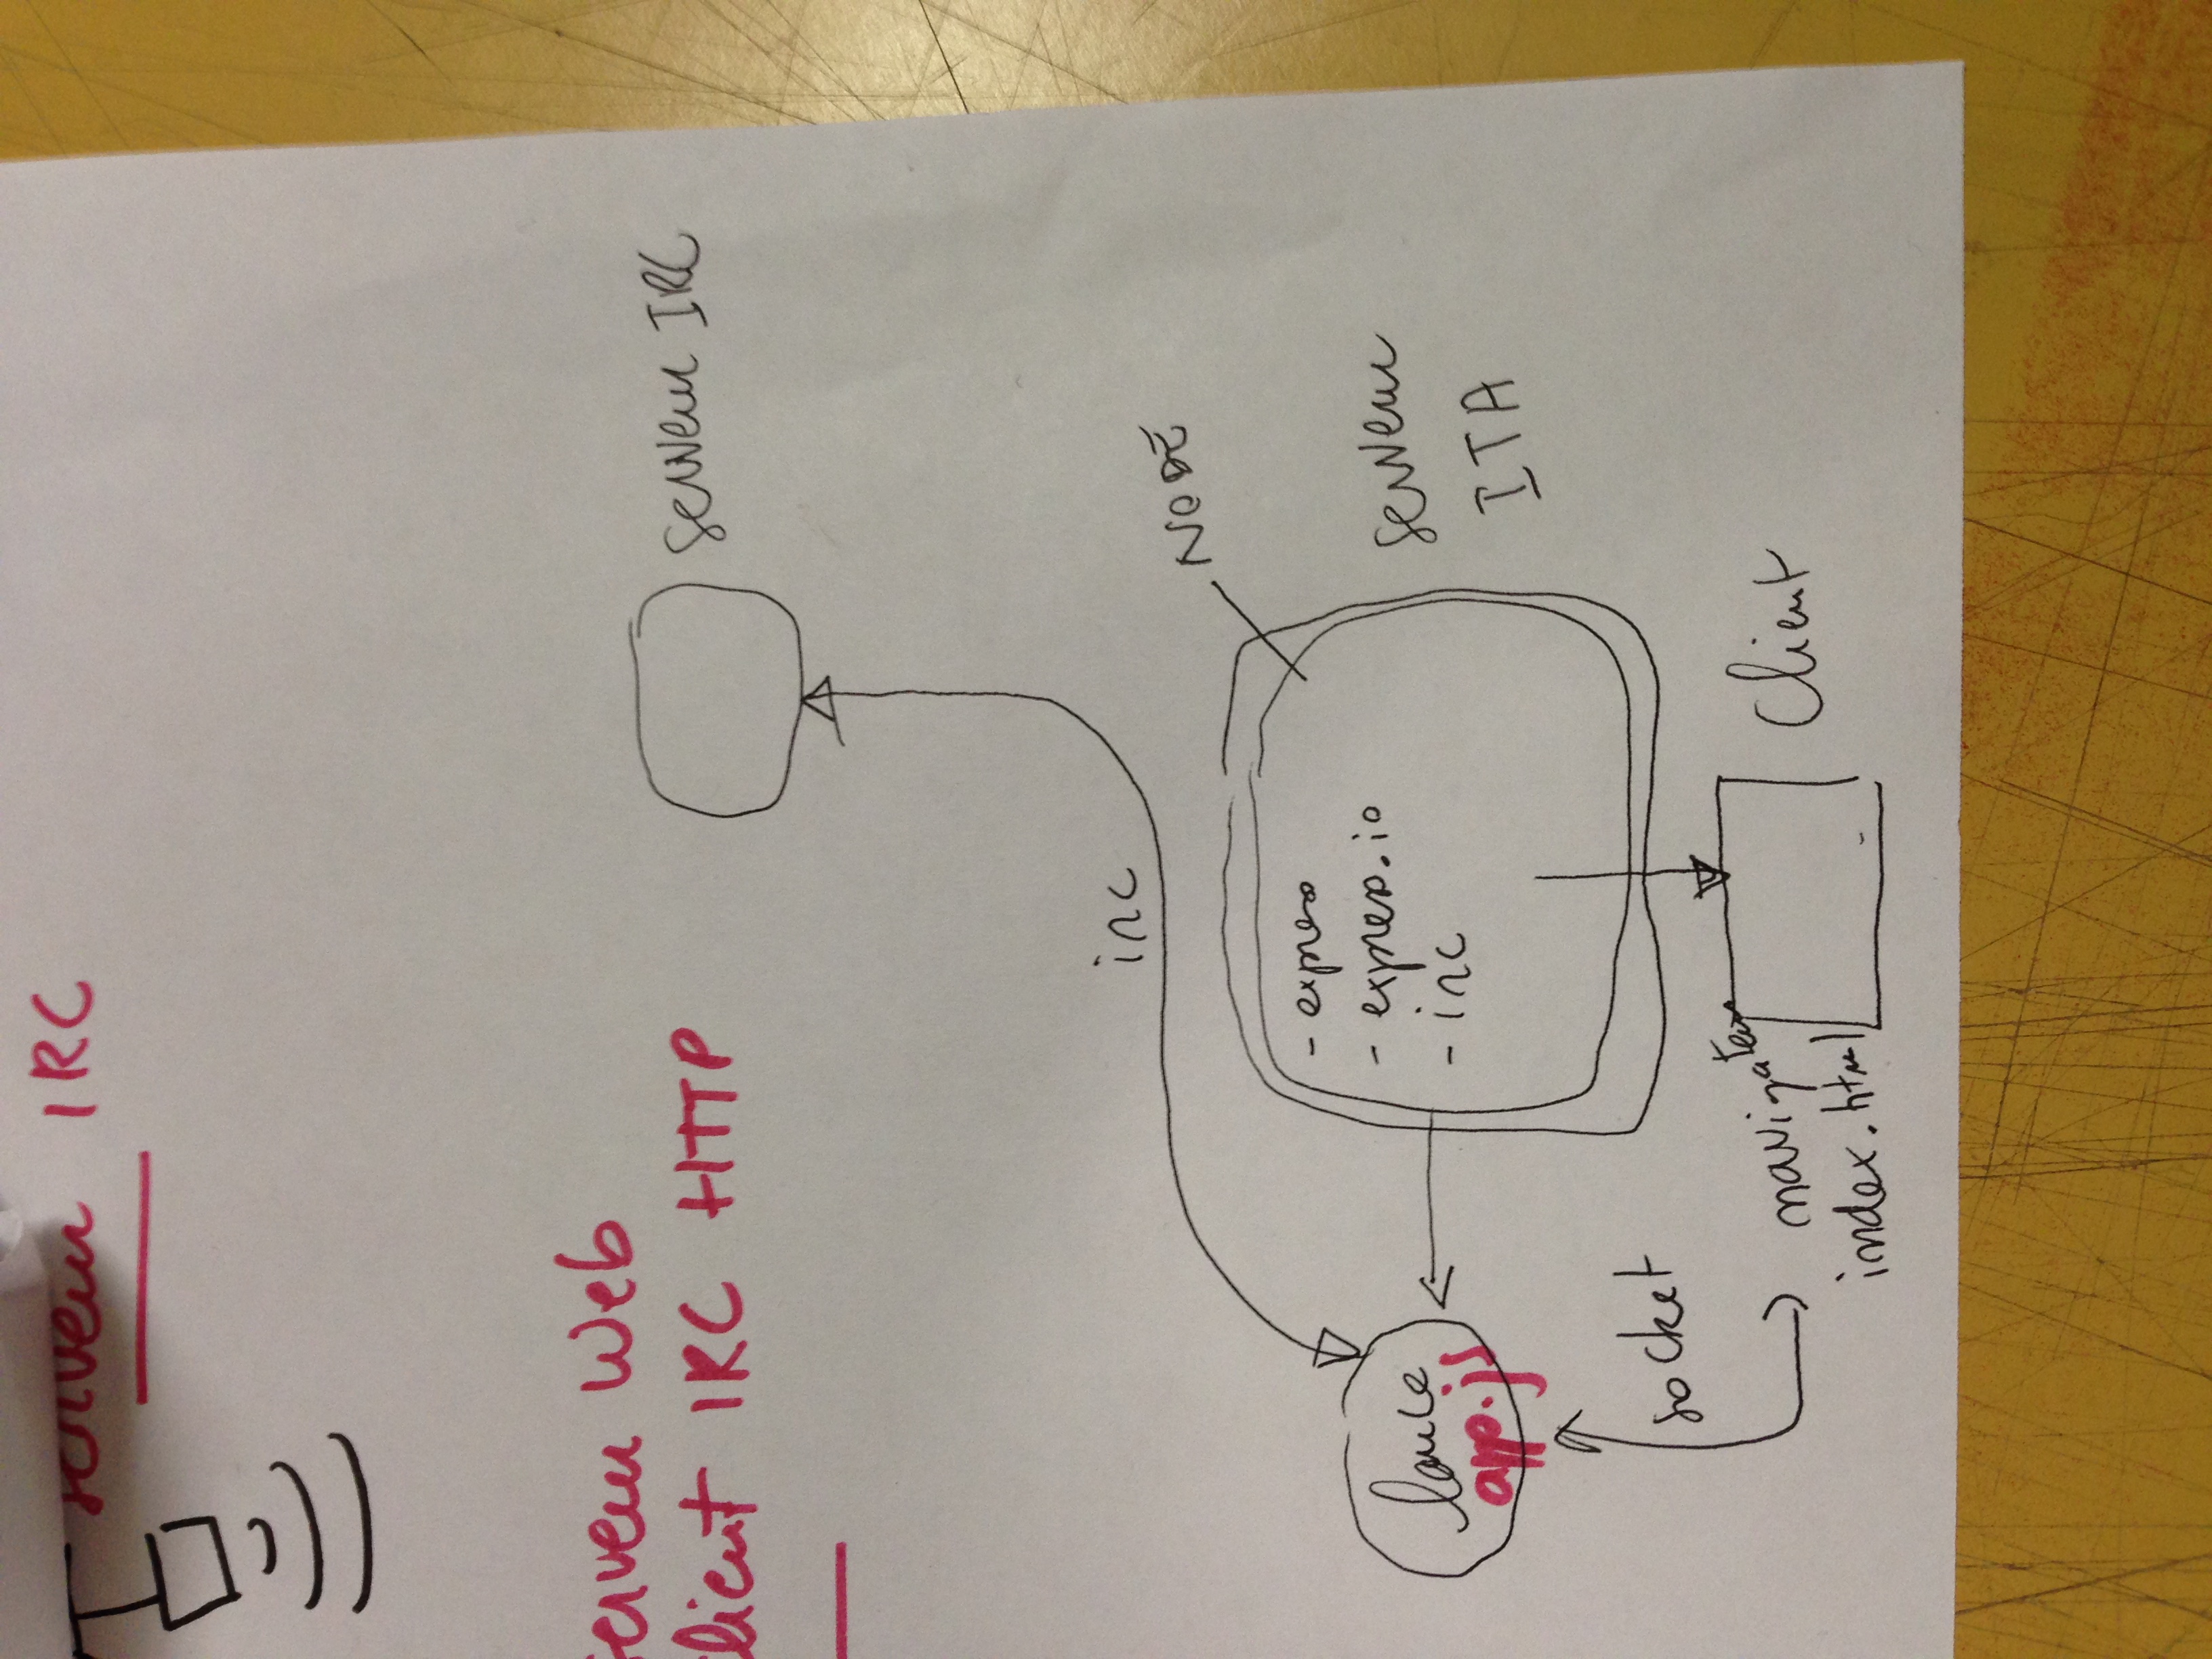 serveur IRC
serveur Web
client IRC HTTP
serveur IRC
irc
NODE
- express
- express.io
- irc
lance
app.js
serveur
ITA
socket
navigateur
index.html
Client